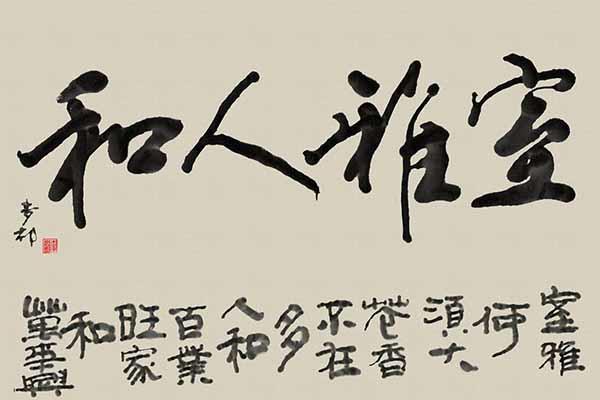 室雅人和
室雅何須大花香不在多人和百業旺家和萬事興